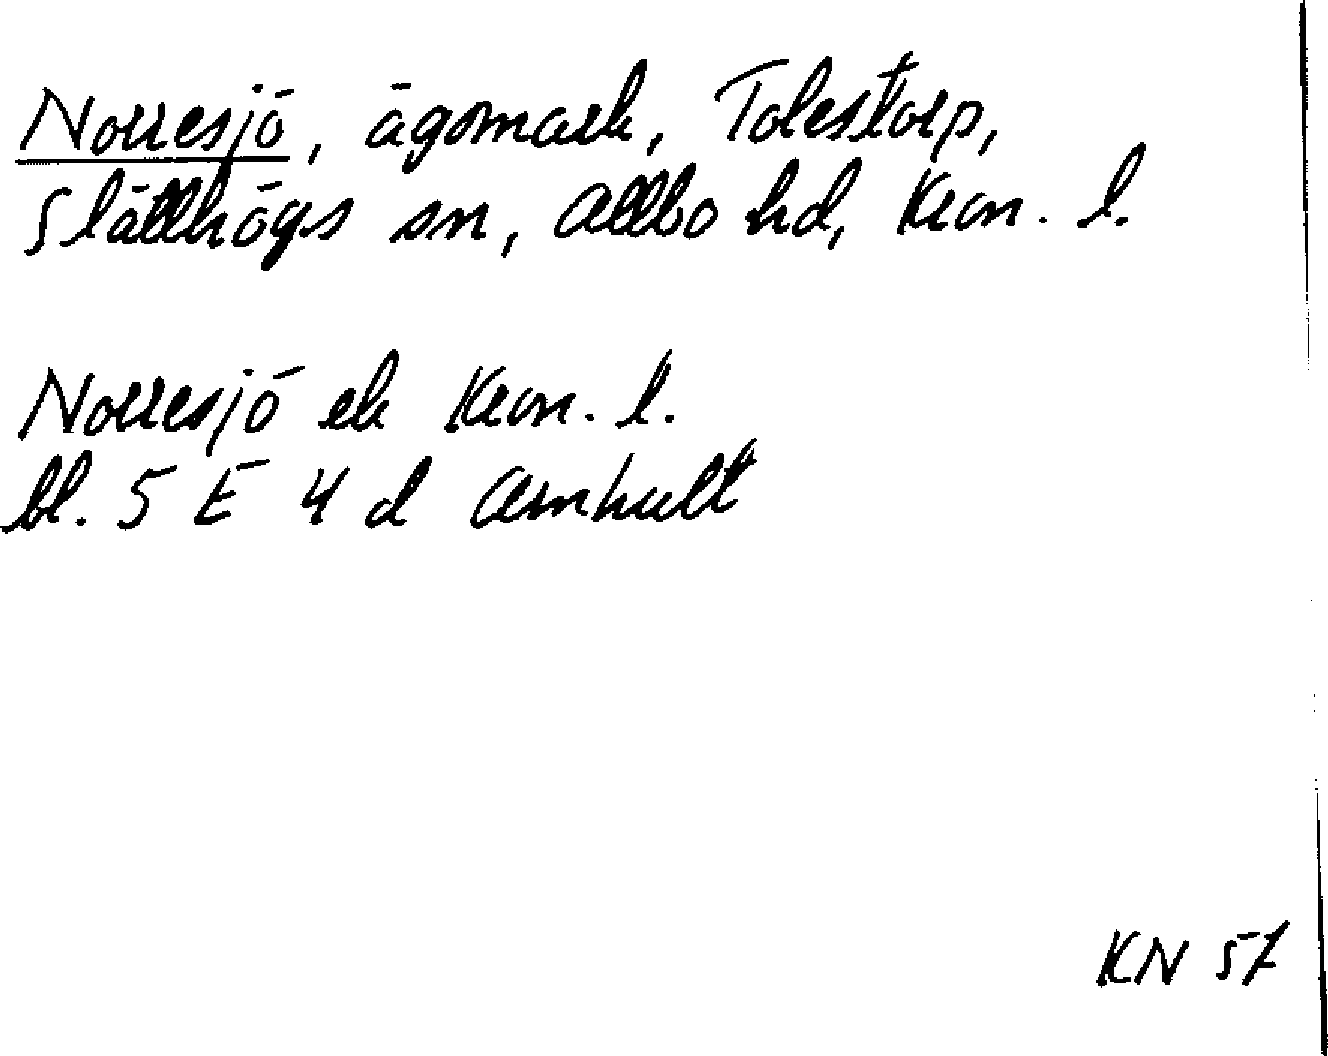 Norresjö, ägomark, Tolestorp,
Slätthögs sn, Allbo hd, Kron. l.
Norresjö ek Kron. l.
bl. 5 E 4 d Alvhult
KN 57